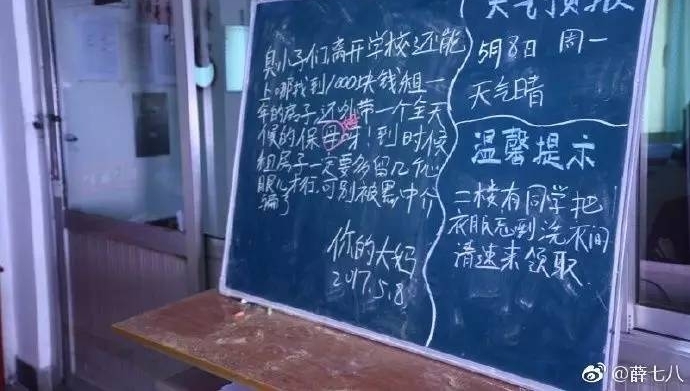 臭小子们离开学校还能
上哪找到1000块钱租一
年的房子还外带一个全天
候的保母呀!到时候
租房子一定要多留几个心
眼儿才行,可别被黑中介
骗了
你的大妈
2017.5.8
天气预报
5月8日 周一
天气晴
温馨提示
二楼有同学把
衣服忘到洗衣间
请速来领取.
@薛七八